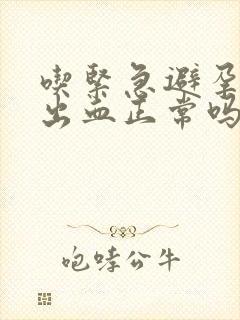 喫緊急避孕
出血正常吗
咆哮公牛